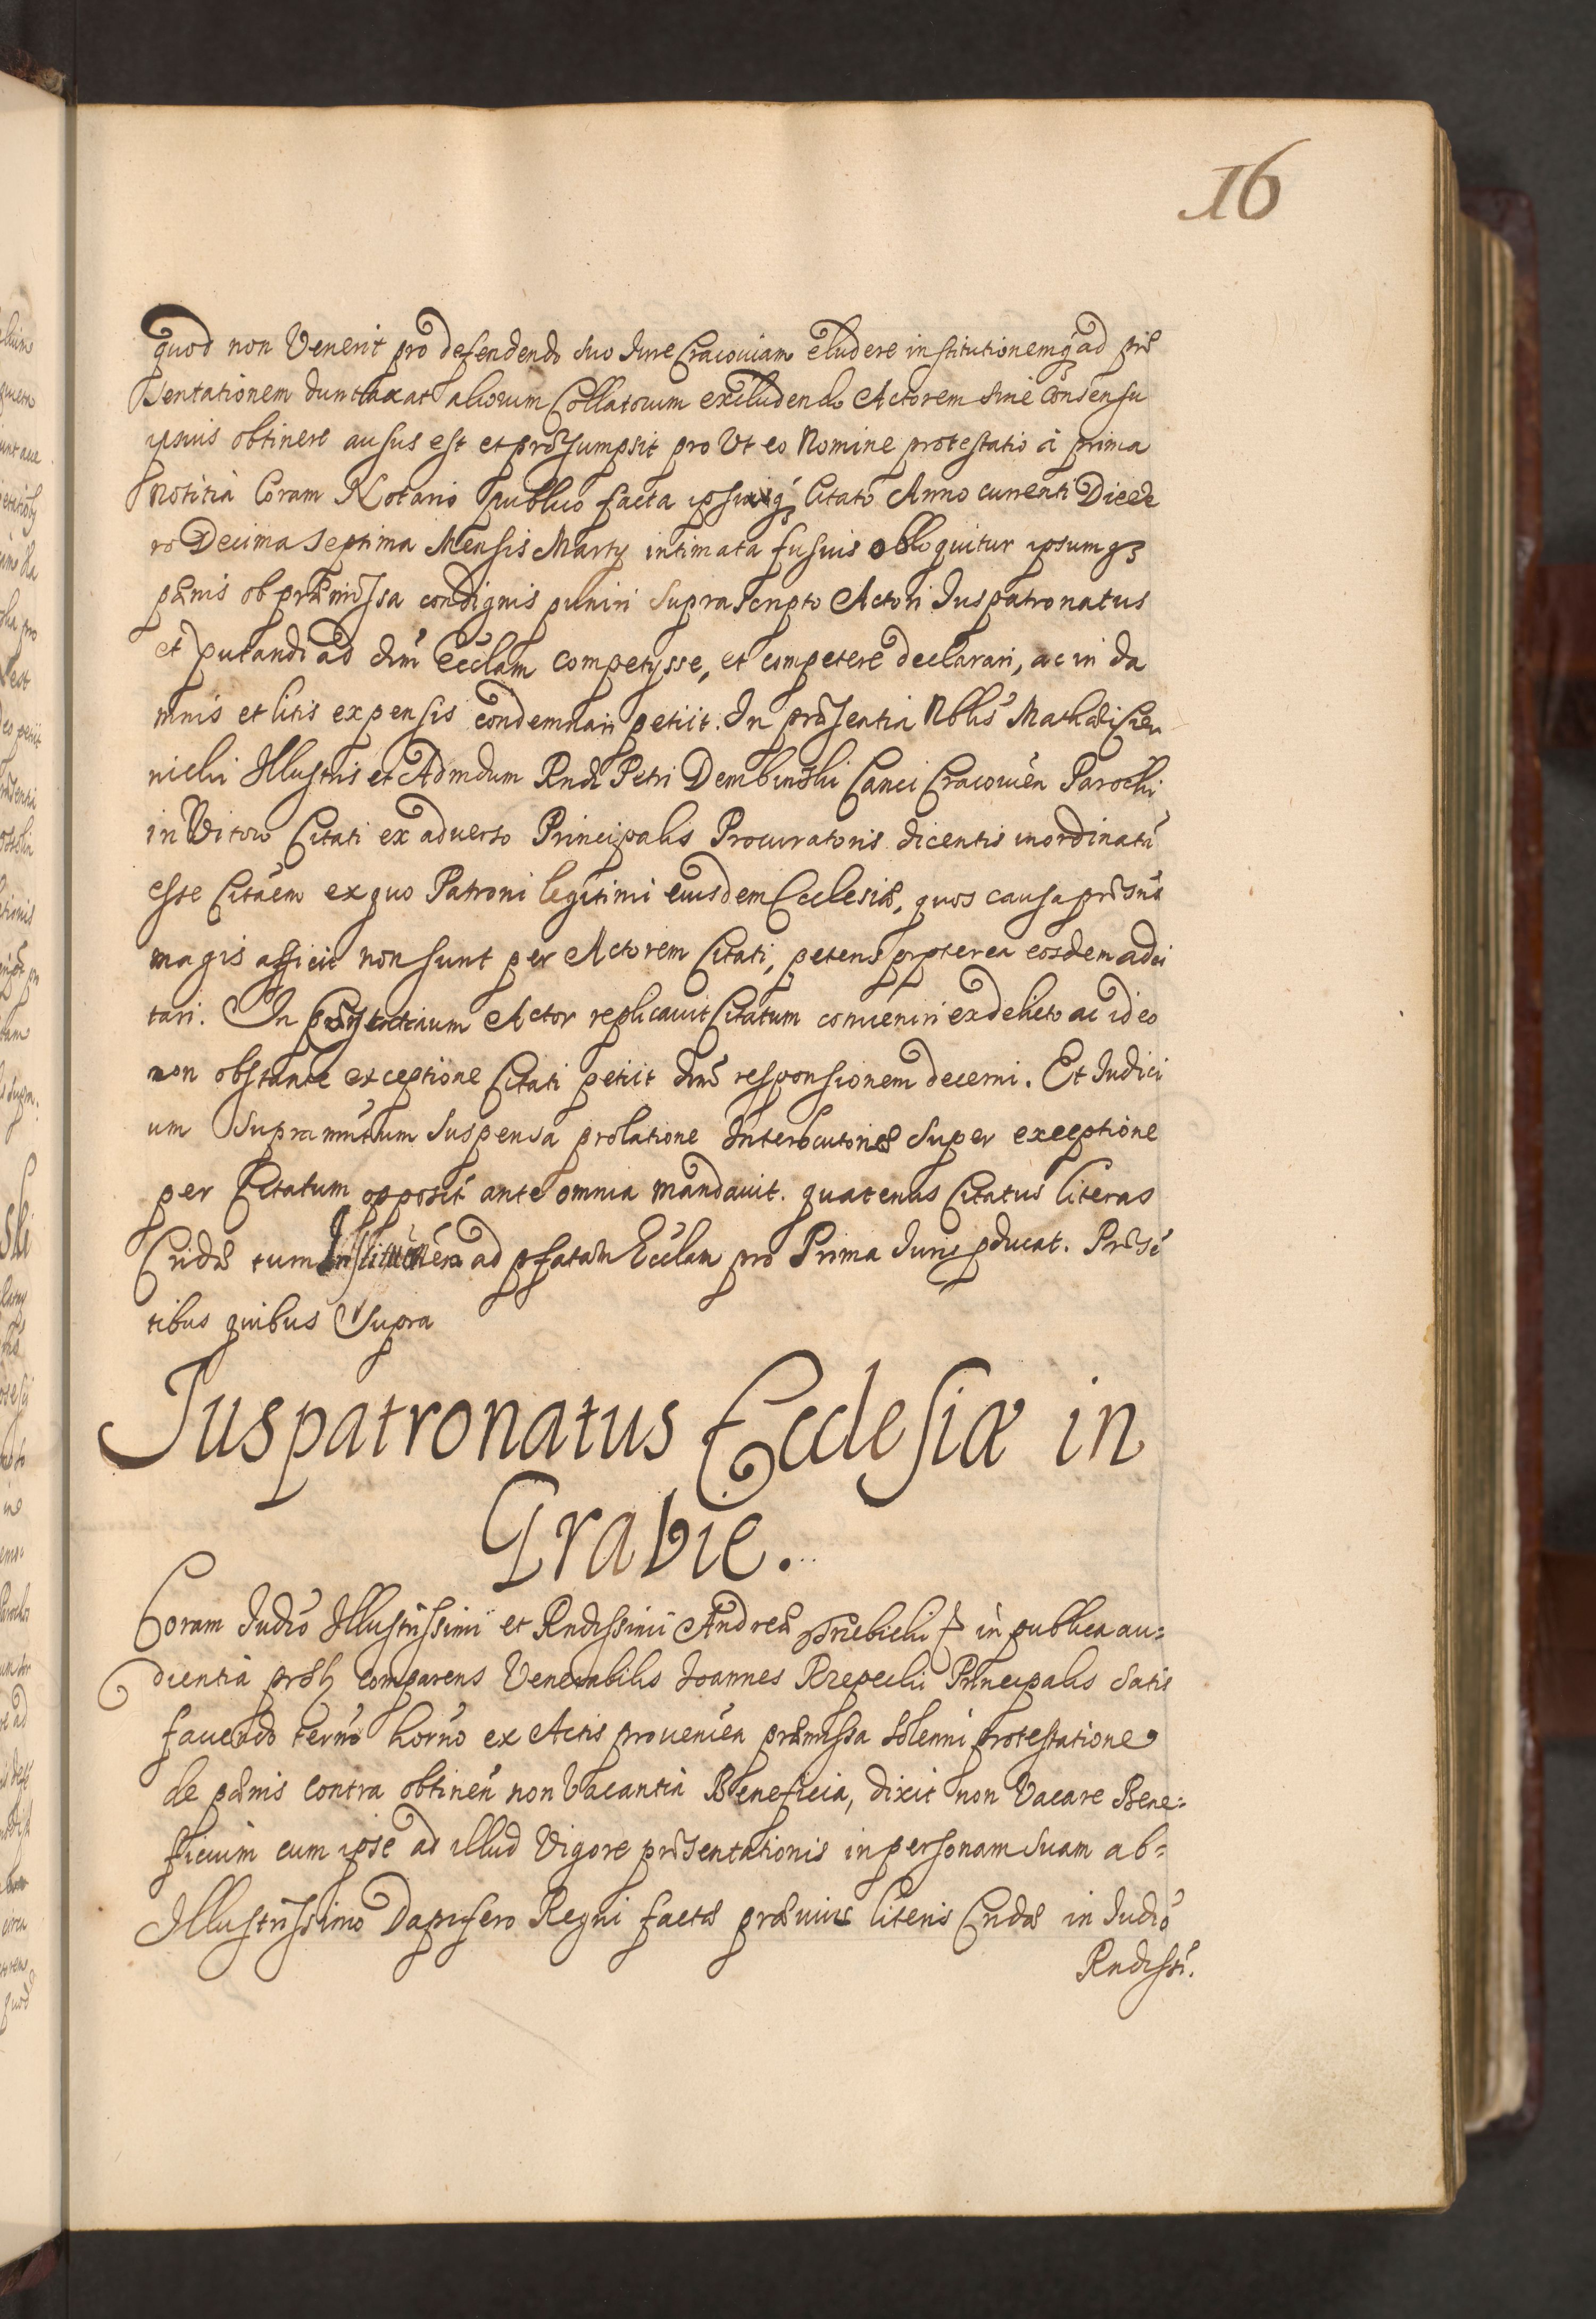 16
quod non Venerit pro defendendo suo Jure Cracouiam eludere institutionemq3 ad præ
sentationem duntaxat aliorum Collatorum excludendo Actorem sine consensu
ipsius obtinere ausus est et præsumpsit pro Ut eo Nomine protestatio à prima
notitia Coram Notario publico facta ipsiusq3 Citato Anno currenti Die de
ro Decima septima Mensis Martij intimata fusius obloquitur ipsumq3
pænis ob præmissa condignis puniri suprascripto Actori Juspatronatus
et putandi ad dm̃ Ecclam competijsse, et competere declarari, ac in da
mnis et litis expensis condemnari petijt. In præsentia Nblis Mathæi
nicki Illustris et Admdum Rndi Petri Dembinski Canci Cracouien Parochi
in Citati ex aduerso Principalis Procuratoris dicentis inordinatã
esse Citãem ex quo Patroni legitimi eiusdem Ecclesiæ, quos causa præsns
magis afficit non sunt per Actorem Citati, petens propterea eosdem adci
tari. In Actor replicauit Citatum conueniri ex delicto ac ideo
non obstante exceptione Citati petijt dnẽ responsionem decerni. Et Judici
um supramntum suspensa prolatione Interlocutoriæ super exceptione
per Citatum opposit̃ ante omnia mandauit. quatenus Citatus literas
Cridæ tum Institutiõnem ad pfatam Ecclam pro Prima Juris pducat. Præsẽ
tibus quibus Supra
Juspatronatus Ecclesiæ in
Grabie.
Coram Judio Illustrissimi et Rndissimi Andreæ Trzebicki in publica au=
dientia comparens Venerabilis Joannes Rzepecki Principalis satis
faciendo termo horno ex Actis prouenien præmissa solenni protestatione
de pænis contra obtineñ non Vacantia Beneficia, dixit non Vacare Bene=
ficium cum ipse ad illud Vigore præsentationis in personam suam ab=
Illustrissimo Dapifero Regni factæ præuius literis Cridæ in Judio
Rndissi.